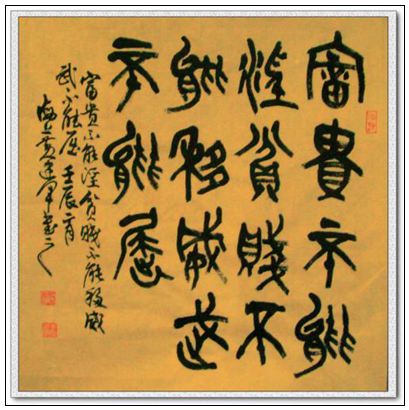 富貴不能
淫貧賤不
能移威武
不能屈
富贵不能淫贫贱不能移威
武不能屈 壬辰
黄